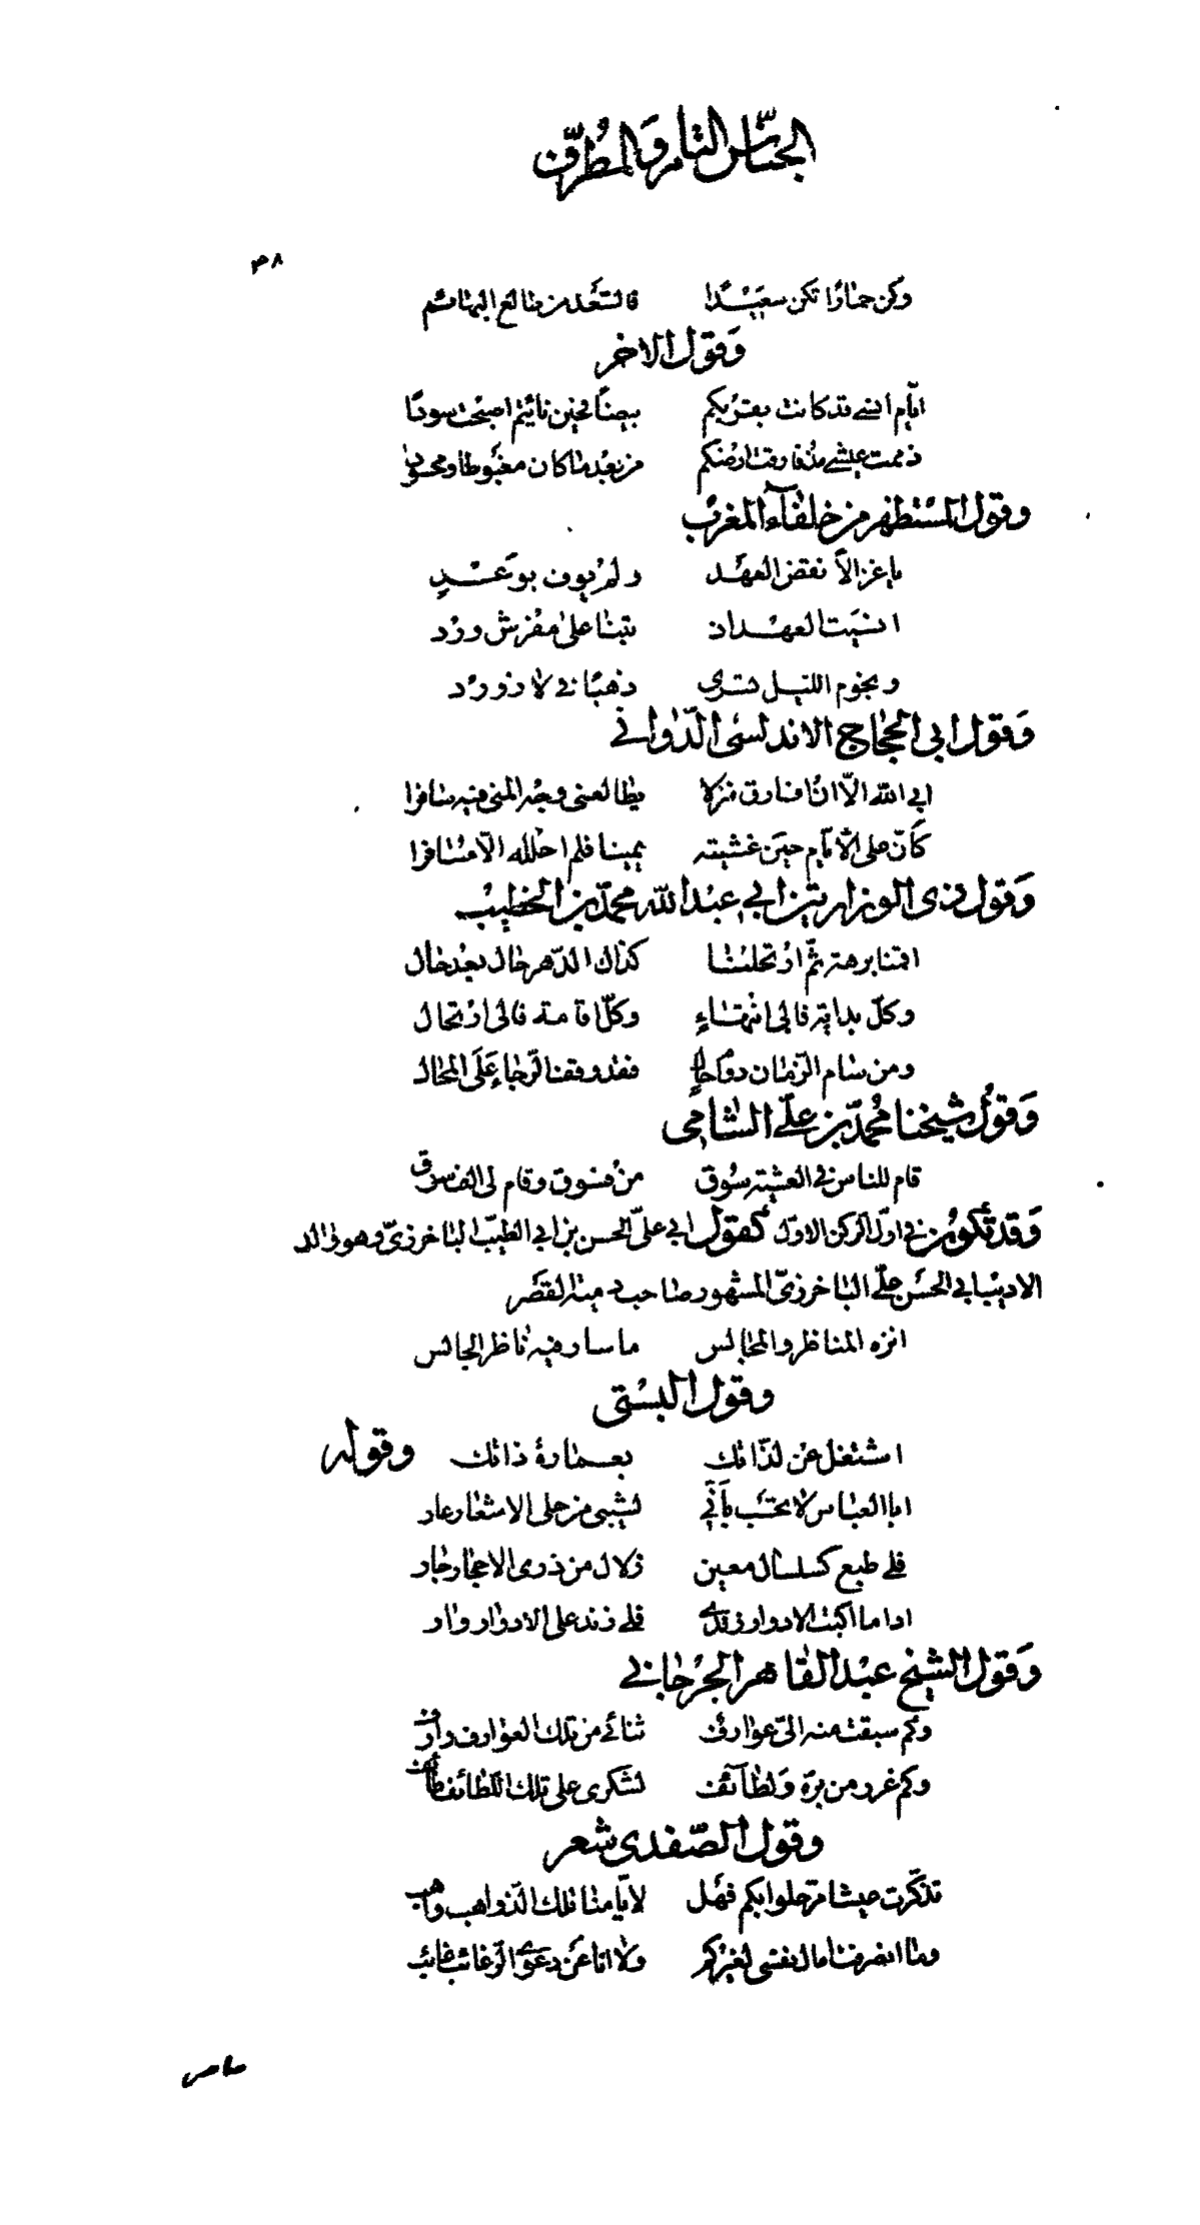 الجناس التام والمطرف
٣٨
وكن حمارًا تكن سعيدا فالسعد من طالع البهائم
وقول الاخر
ايّام انسي قد كانت بقربكم بيضًا فحين نأيتم اصبحت سودًا
ذممت عيشي مذ فارقت ارضكم من بعد ما كان مغبوطا ومحسودا
وقول المستظهر من خلفآء المغرب
يا غزالاً نقض العهد ولم يوف بوعد
انسيت العهد اذ بتنا على مفرش ورد
ونجوم الليل تسري ذهبًا في لازورد
وقول ابي الحجاج الاندلسي الدّواني
ابى الله الاّ ان افارق منزلا يطالعني وجه المنى فيه سافرا
كأنّ على الايّام حين غشيته يمينا فلم احلله الاّ مسافرا
وقول ذي الوزارتين ابي عبد الله محمّد بن الخطيب
اقمنا برهة ثمّ ارتحلنا كذاك الدّهر حال بعد حال
وكلّ بداية فالى انتهاءٍ وكلّ اقامة فالى ارتحال
ومن سام الزّمان دوام حالٍ فقد وقف الرّجاء على المحال
وقول شيخنا محمّد بن علي الشامي
قام للناس في العشية سوق من فسوق وقام لي الف سوق
وقد تكون في اول الركن الاول كقول ابي عليّ الحسن بن ابي الطيّب الباخرزيّ وهو والد
الاديب ابي الحسن علي الباخرزيّ المشهور صاحب دمية القصر
انزه المناظر والمجالس ما سار فيه ناظر الجالس
وقول البستي
اشتغل عن لذّاتك بعمارة ذاتك وقوله
ابا العباس لا تحسب بأنّي لشيبي من حلى الاشعار عار
فلي طبع كسلسال معين زلال من ذرى الاحجار جار
اذا ما اكبت الادوار زندًا فلي زند على الادوار وار
وقول الشيخ عبد القاهر الجرجاني
وكم سبقت منه اليّ عوارف ثنائي من تلك العوارف وارف
وكم غرر من برّه ولطآئف لشكري على تلك اللّطائف طائف
وقول الصّفدي شعر
تذكّرت عيشا مرّ حلوا بكم فهل لايّامنا تلك الذّواهب واهب
وما انصرفت امال نفسي لغيركم ولا انا عن دعوى الرّغائب غائب